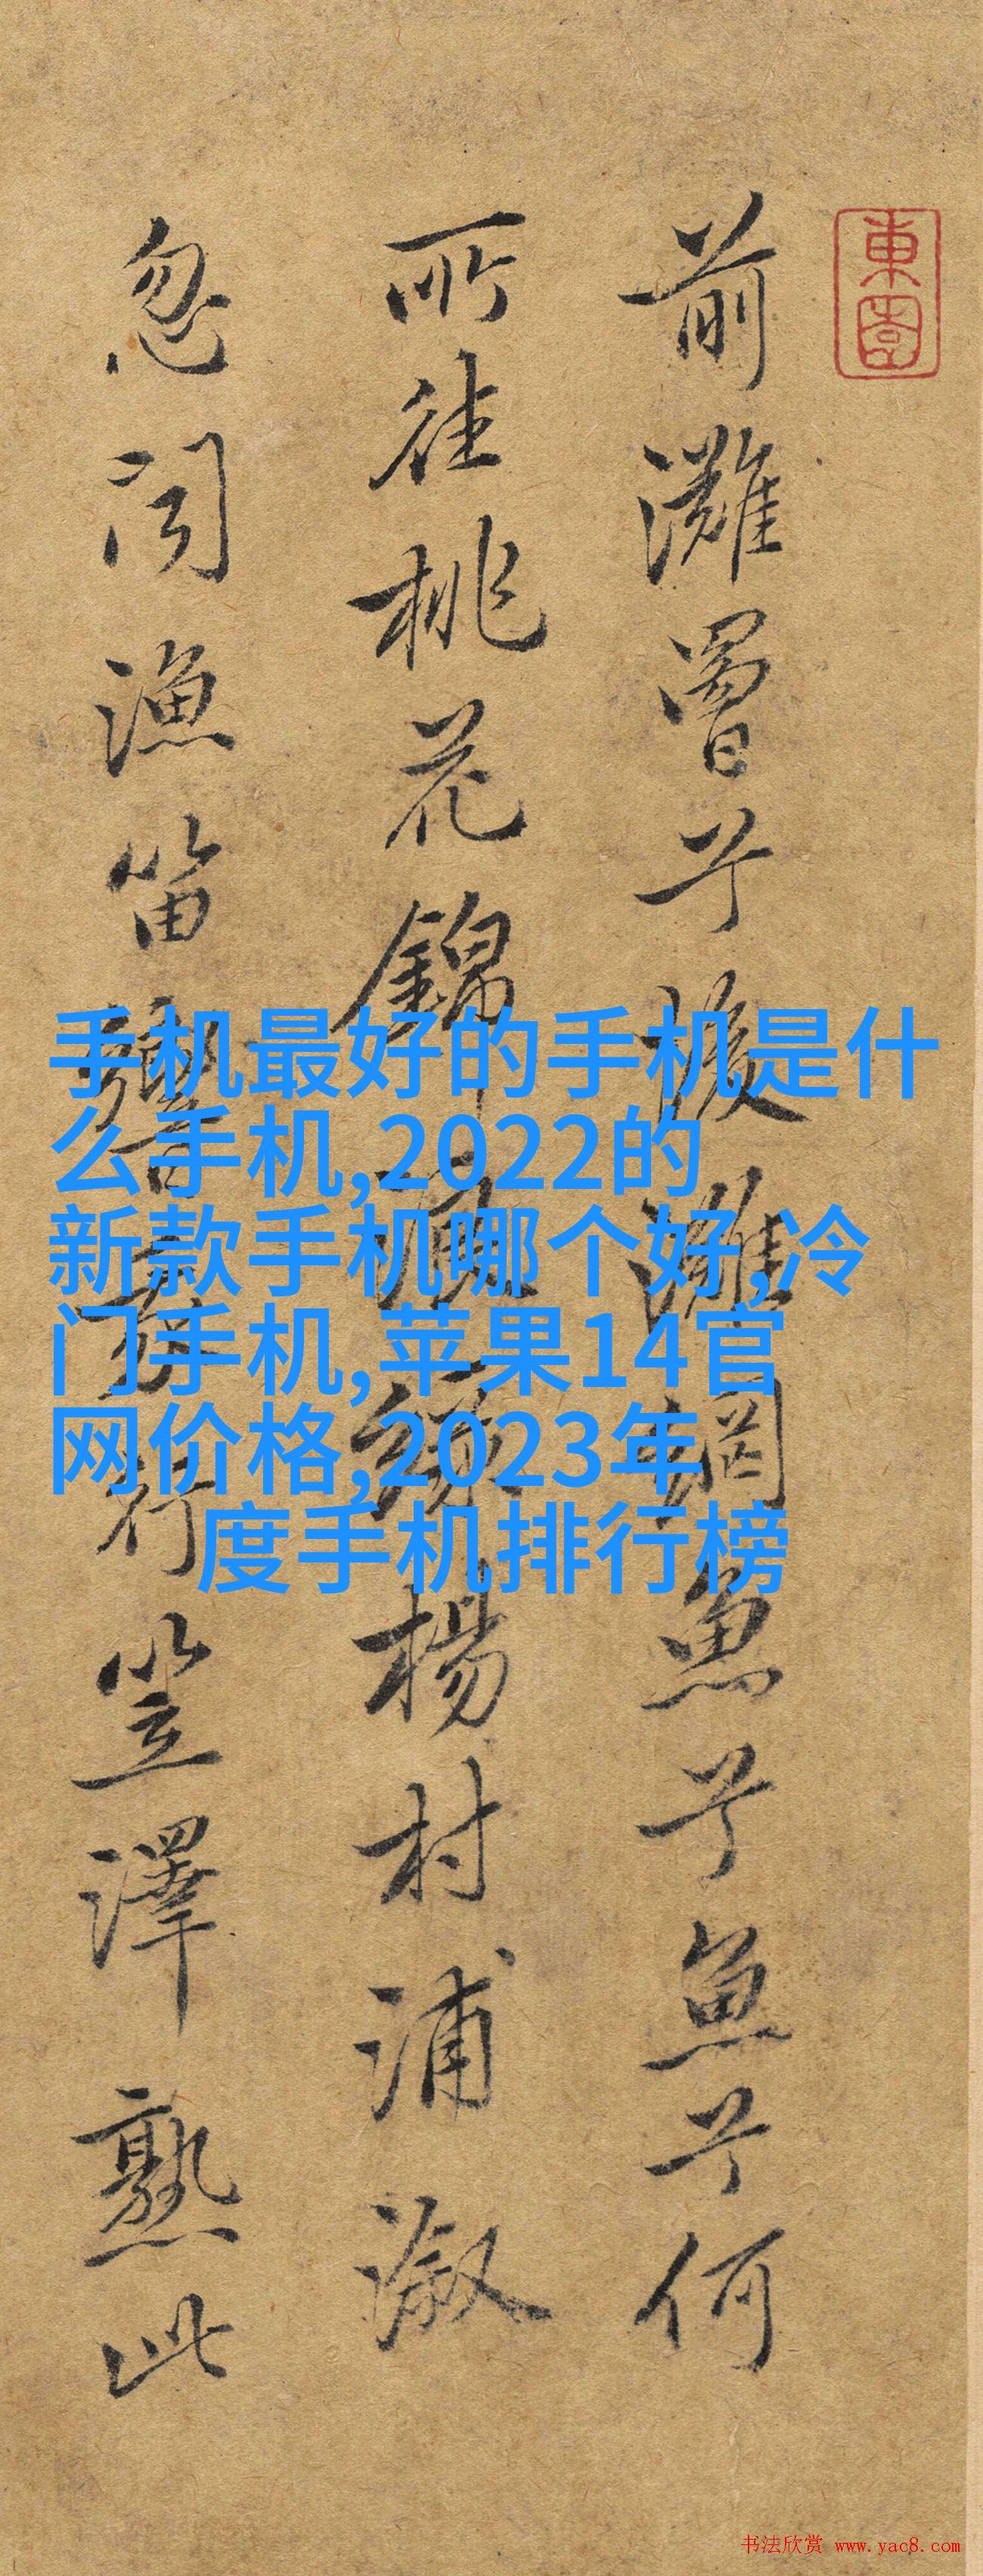 東園
前灘曾子後灘網魚子魚子何
所往桃花錦
楊村浦溆
忽闻漁笛響
行笠澤熟此
手机最好的手机是什
么手机,2022的
新款手机哪个好,冷
门手机,苹果14官
网价格,2023年
度手机排行榜
书法欣赏 www.yac8.com